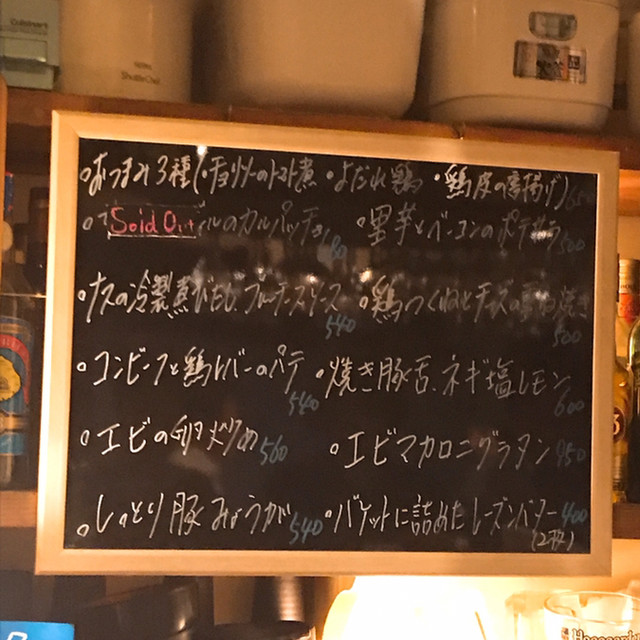 Cuisinart
ShuttleChef
・おつまみ3種(・チョリソーのトマト煮 ・よだれ鶏 ・鶏皮の唐揚げ)
Sold Out のカルパッチョ
・里芋とベーコンのポテサラ 500
・ナスの冷製煮びたし、フルーツソース 540
・鶏つくねとチーズの 焼き 500
・コンビーフと鶏レバーのパテ 540
・焼き豚舌、ネギ塩レモン 600
・エビの卵炒め 560
・エビマカロニグラタン 950
・しっとり豚みょうが 540
・バゲットに詰めたレーズンバター 400
(2ヶ)